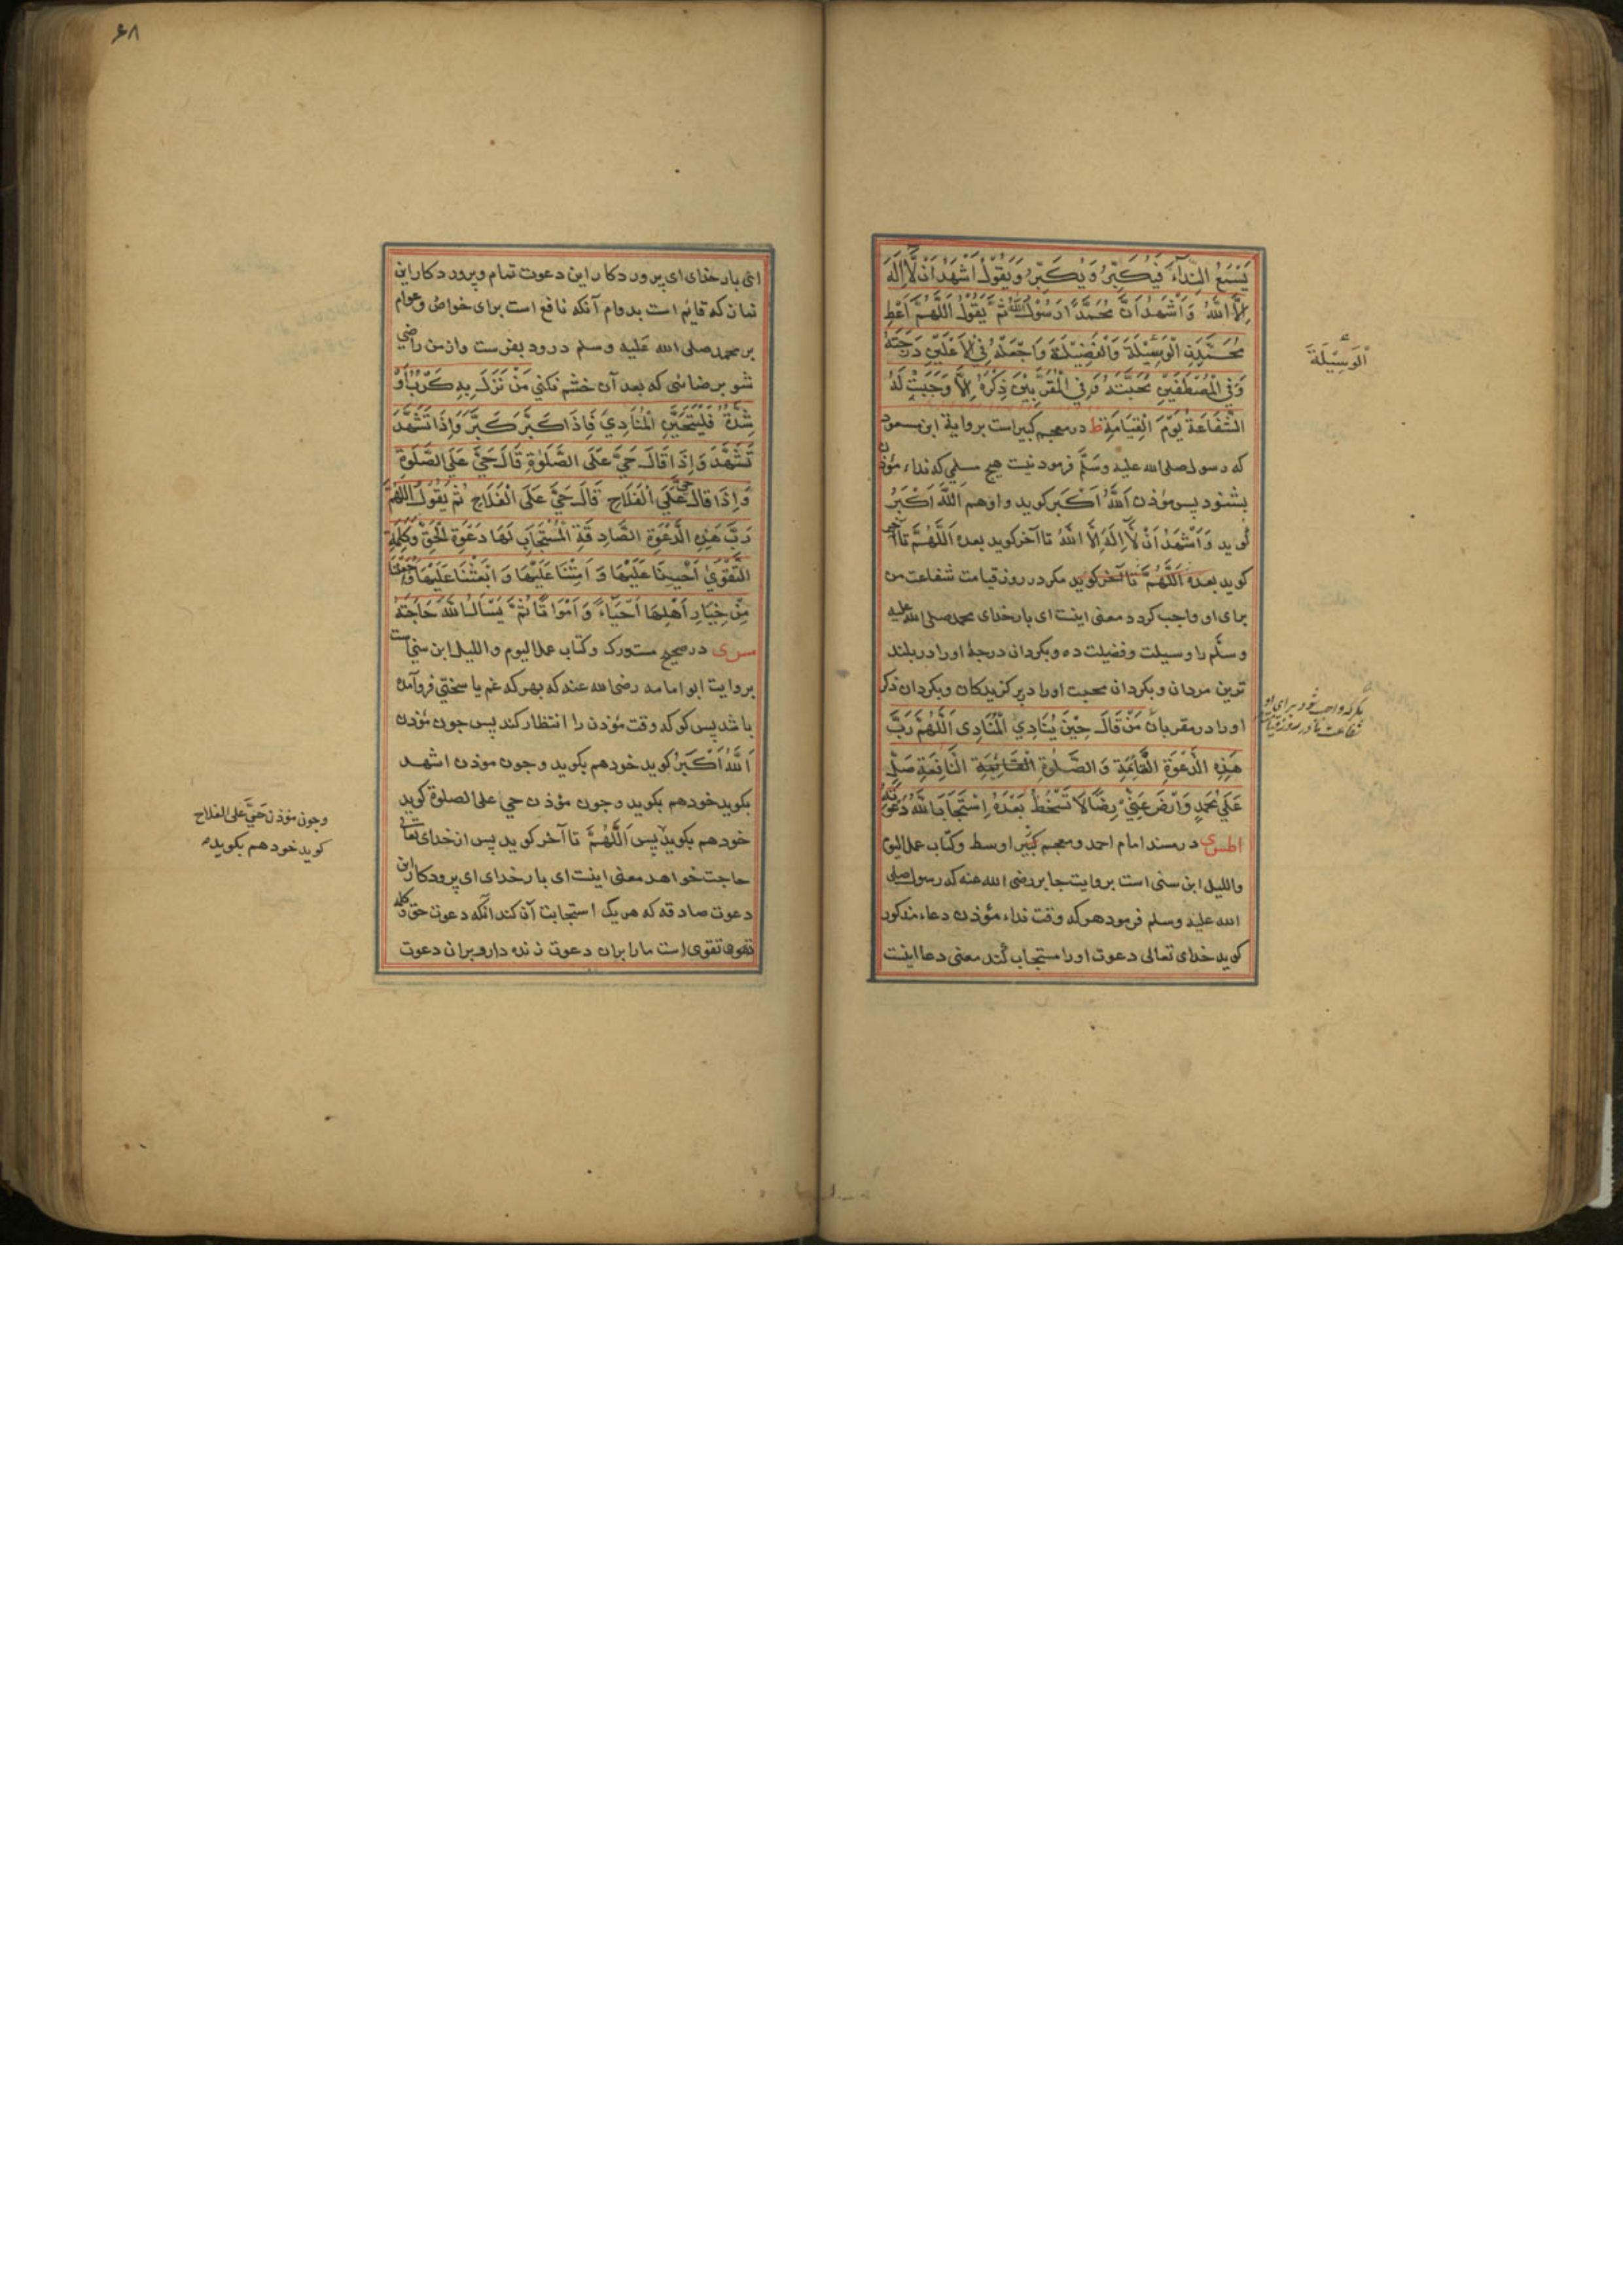 يَسْمَعُ النِّدَآءَ فَيُكَبِّرُ وَيُكَبِّرُ وَيَقُوْلُ اَشْهَدُ اَنْ لَّا اِلٰهَ
اِلَّا اللّٰهُ وَاَشْهَدُ اَنَّ مُحَمَّدًا رَسُوْلُ اللّٰهِ ثُمَّ يَقُوْلُ اَللّٰهُمَّ اَعْطِ
مُحَمَّدَنِ الْوَسِيْلَةَ وَالْفَضِيْلَةَ وَاجْعَلْهُ فِي الْاَعْلَيْنَ دَرَجَتَهُ
الْوَسِيْلَةَ
وَفِي الْمُصْطَفَيْنَ مُحَبَّتَهُ وَفِي الْمُقَرَّبِيْنَ ذِكْرُهُ اِلَّا وَجَبَتْ لَهُ
الشَّفَاعَةُ يَوْمَ الْقِيَامَةِ ط در معجم كبير است برواية ابن مسعود
كه رسول صلى الله عليه وسلم فرمود نيست هيچ مسلمي كه نداء مؤذن
بشنود پس مؤذن اَللّٰهُ اَكْبَر كويد واو هم اَللّٰهُ اَكْبَرُ
كويد وَاَشْهَدُ اَنْ لَّا اِلٰهَ اِلَّا اللّٰهُ تا آخر كويد بعده اَللّٰهُمَّ تا آخر
كويد بعده اَللّٰهُمَّ تا آخر كويد مكر در روز قيامت شفاعت من
براى او واجب كردد معنى اينست اى بار خداى محمد صلى الله عليه
وسلم را وسيلت وفضيلت ده وبكردان درجهٔ او را در بلند
ترين مردان وبكردان محبت او را در بركزيدكان وبكردان ذكر
او را در مقربان مَنْ قَالَ حِيْنَ يُنَادِي الْمُنَادِى اَللّٰهُمَّ رَبَّ
مكر كه واجب شود براى او
شفاعت ما در روز قيامت
هٰذِهِ الدَّعْوَةِ الْقَائِمَةِ وَالصَّلٰوةِ النَّافِعَةِ صَلِّ
عَلٰى مُحَمَّدٍ وَارْضَ عَنِّيْ رِضًا لَا تَسْخَطُ بَعْدَهُ اِسْتَجَابَ اللّٰهُ دَعْوَتَهُ
اطس ى در مسند امام احمد ومعجم كبير اوسط وكتاب عمل اليوم
والليل ابن سنى است بروايت جابر رضى الله عنه كه رسول صلى
الله عليه وسلم فرمود هركه وقت نداء مؤذن دعاء مذكور
كويد خداى تعالى دعوت او را مستجاب كند معنى دعا اينست
۶۸
اى بار خداى اى پروردكار اين دعوت تمام وپروردكار اين
نماز كه قايم است بدوام آنكه نافع است براى خواص وعوام
بر محمد صلى الله عليه وسلم درود بفرست واز من راضي
شو برضائى كه بعد آن خشم نكني مَنْ نَزَلَ بِهِ كَرْبٌ اَوْ
شِدَّةٌ فَلْيَتَحَيَّنِ الْمُنَادِيَ فَاِذَا كَبَّرَ كَبَّرَ وَاِذَا تَشَهَّدَ
تَشَهَّدَ وَاِذَا قَالَ حَيَّ عَلَى الصَّلٰوةِ قَالَ حَيَّ عَلَى الصَّلٰوةِ
وَاِذَا قَالَ حَيَّ عَلَى الْفَلَاحِ قَالَ حَيَّ عَلَى الْفَلَاحِ ثُمَّ يَقُوْلُ اَللّٰهُمَّ
رَبَّ هٰذِهِ الدَّعْوَةِ الصَّادِقَةِ الْمُسْتَجَابِ لَهَا دَعْوَةِ الْحَقِّ وَكَلِمَةِ
التَّقْوٰى اَحْيِنَا عَلَيْهَا وَاَمِتْنَا عَلَيْهَا وَابْعَثْنَا عَلَيْهَا وَاجْعَلْنَا
مِنْ خِيَارِ اَهْلِهَا اَحْيَاءً وَاَمْوَاتًا ثُمَّ يَسْاَلُ اللّٰهَ حَاجَتَهُ
مس ى در صحيح مستدرك وكتاب عمل اليوم والليل ابن سنى است
بروايت ابو امامه رضى الله عنه كه بهر كه غم يا سختى فرو آمده
باشد پس كو كه وقت مؤذن را انتظار كند پس چون مؤذن
اَللّٰهُ اَكْبَرُ كويد خود هم بكويد وچون موذن اشهد
بكويد خود هم بكويد وچون مؤذن حي على الصلوة كويد
وچون مؤذن حَيَّ على الفلاح
كويد خود هم بكويد
خود هم بكويد پس اَللّٰهُمَّ تا آخر كويد پس از خداى تعالى
حاجت خواهد معنى اينست اى بار خداى اى پروردكار اين
دعوت صادقه كه هر يك استجابت آن كند آنكه دعوت حق وكلمه
تقوى تقوى است ما را بران دعوت زنده دار وبران دعوت